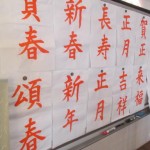 賀正
正月
長寿
新春
賀春
来福
吉祥
正月
新年
頌春